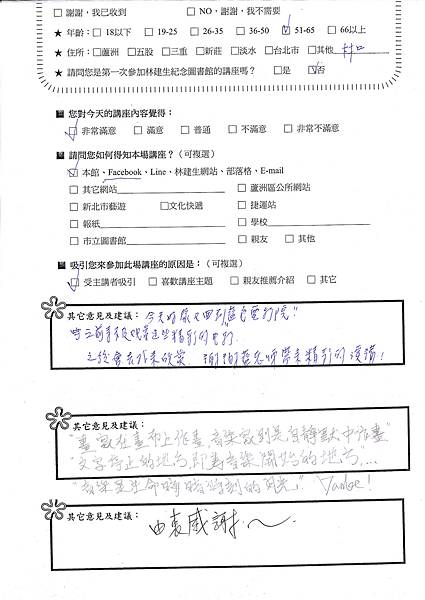 □ 謝謝，我已收到 □ NO，謝謝，我不需要
★ 年齡：□ 18以下 □ 19-25 □ 26-35 □ 36-50 ☑ 51-65 □ 66以上
★ 住所：□蘆洲 □五股 □三重 □新莊 □淡水 □台北市 □其他
★ 請問您是第一次參加林建生紀念圖書館的講座嗎？ □是 ☑否
■ 您對今天的講座內容覺得：
☑ 非常滿意 □ 滿意 □ 普通 □ 不滿意 □ 非常不滿意
■ 請問您如何得知本場講座？（可複選）
☑ 本館、Facebook、Line、林建生網站、部落格、E-mail
□ 其它網站 □ 蘆洲區公所網站
□ 新北市藝遊 □文化快遞 □ 捷運站
□ 報紙 □ 學校
□ 市立圖書館 □ 親友 □ 其他
■ 吸引您來參加此場講座的原因是：（可複選）
☑ 受主講者吸引 □ 喜歡講座主題 □ 親友推薦介紹 □ 其它
其它意見及建議： 今天好像又回到
之後會去找來欣賞. 謝謝老師帶來精彩的演講！
其它意見及建議：
"畫家在畫布上作畫 音樂家則是在靜默中作畫"
"文字停止的地方，即為音樂開始的地方，...
"音樂是生命
其它意見及建議： 由衷感謝～.